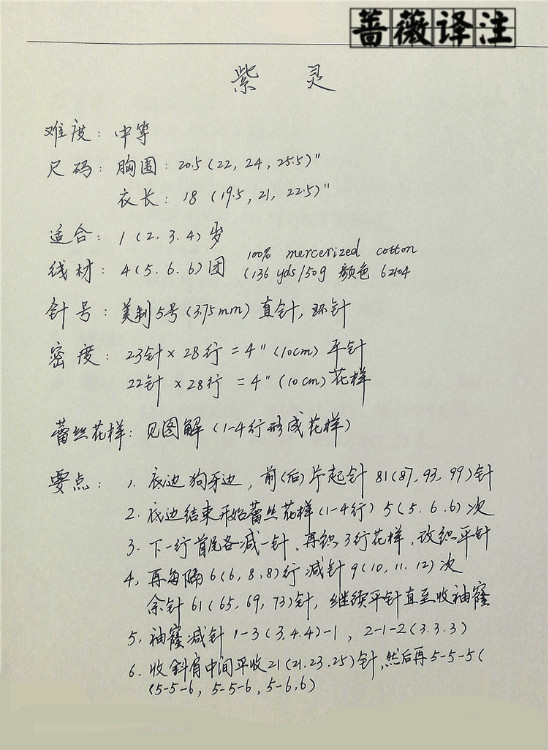 蔷薇译注
紫 灵
难度：中等
尺码：胸围：20.5(22, 24, 25.5)"
衣长：18 (19.5, 21, 22.5)"
适合：1 (2. 3. 4) 岁
线材：4(5. 6. 6) 团 100% mercerized cotton
(136 yds/50g 颜色 62104
针号：美制5号(3.75mm) 直针，环针
密度：23针×28行=4"(10cm) 平针
22针×28行=4"(10cm) 花样
蕾丝花样：见图解(1-4行形成花样)
要点：1. 底边狗牙边，前(后)片起针 81(87, 93, 99)针
2. 底边结束开始蕾丝花样(1-4行) 5(5. 6. 6) 次
3. 下一行首尾各减一针、再织3行花样，改织平针
4. 再每隔6(6, 8, 8)行减针9(10, 11. 12)次
余针61(65, 69, 73)针，继续平针直至收袖窿
5. 袖窿减针 1-3(3.4.4)-1，2-1-2(3.3.3)
6. 收斜肩中间平收21(21.23.25)针,然后再5-5-5(
(5-5-6, 5-5-6, 5-6,6)